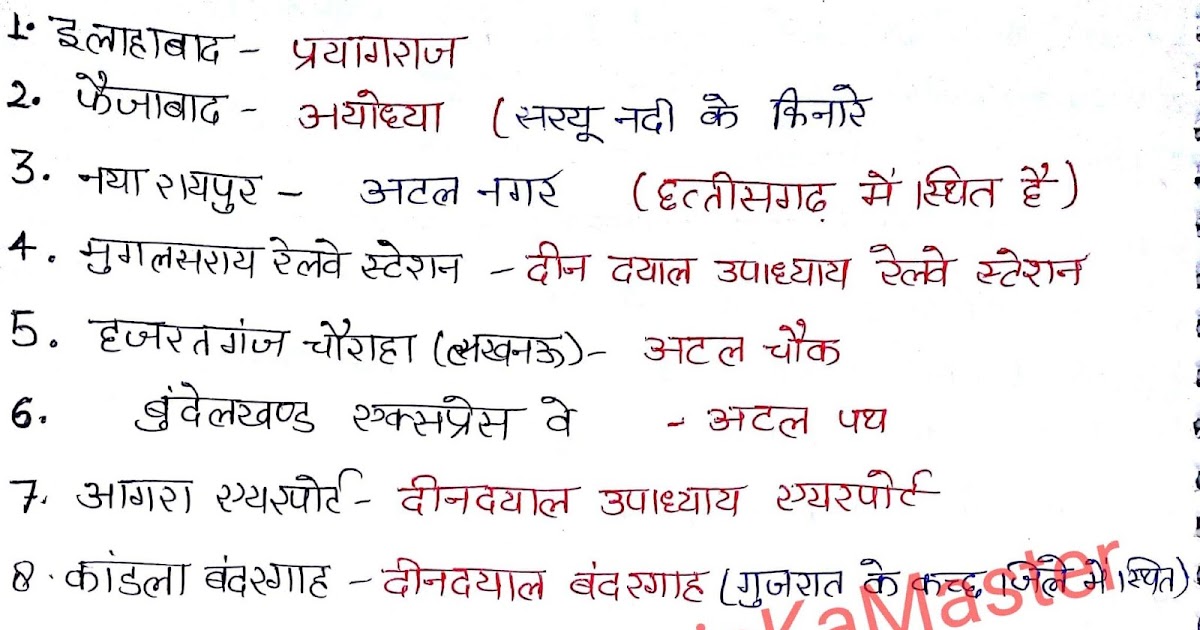 1. इलाहाबाद - प्रयागराज
2. फैजाबाद - अयोध्या (सरयू नदी के किनारे
3. नया रायपुर - अटल नगर (छत्तीसगढ़ में स्थित है)
4. मुगलसराय रेलवे स्टेशन - दीन दयाल उपाध्याय रेलवे स्टेशन
5. हजरतगंज चौराहा (लखनऊ) - अटल चौक
6. बुंदेलखण्ड एक्सप्रेस वे - अटल पथ
7. आगरा एयरपोर्ट - दीनदयाल उपाध्याय एयरपोर्ट
8. कांडला बंदरगाह - दीनदयाल बंदरगाह (गुजरात के कच्छ जिले में स्थित)
KaMaster